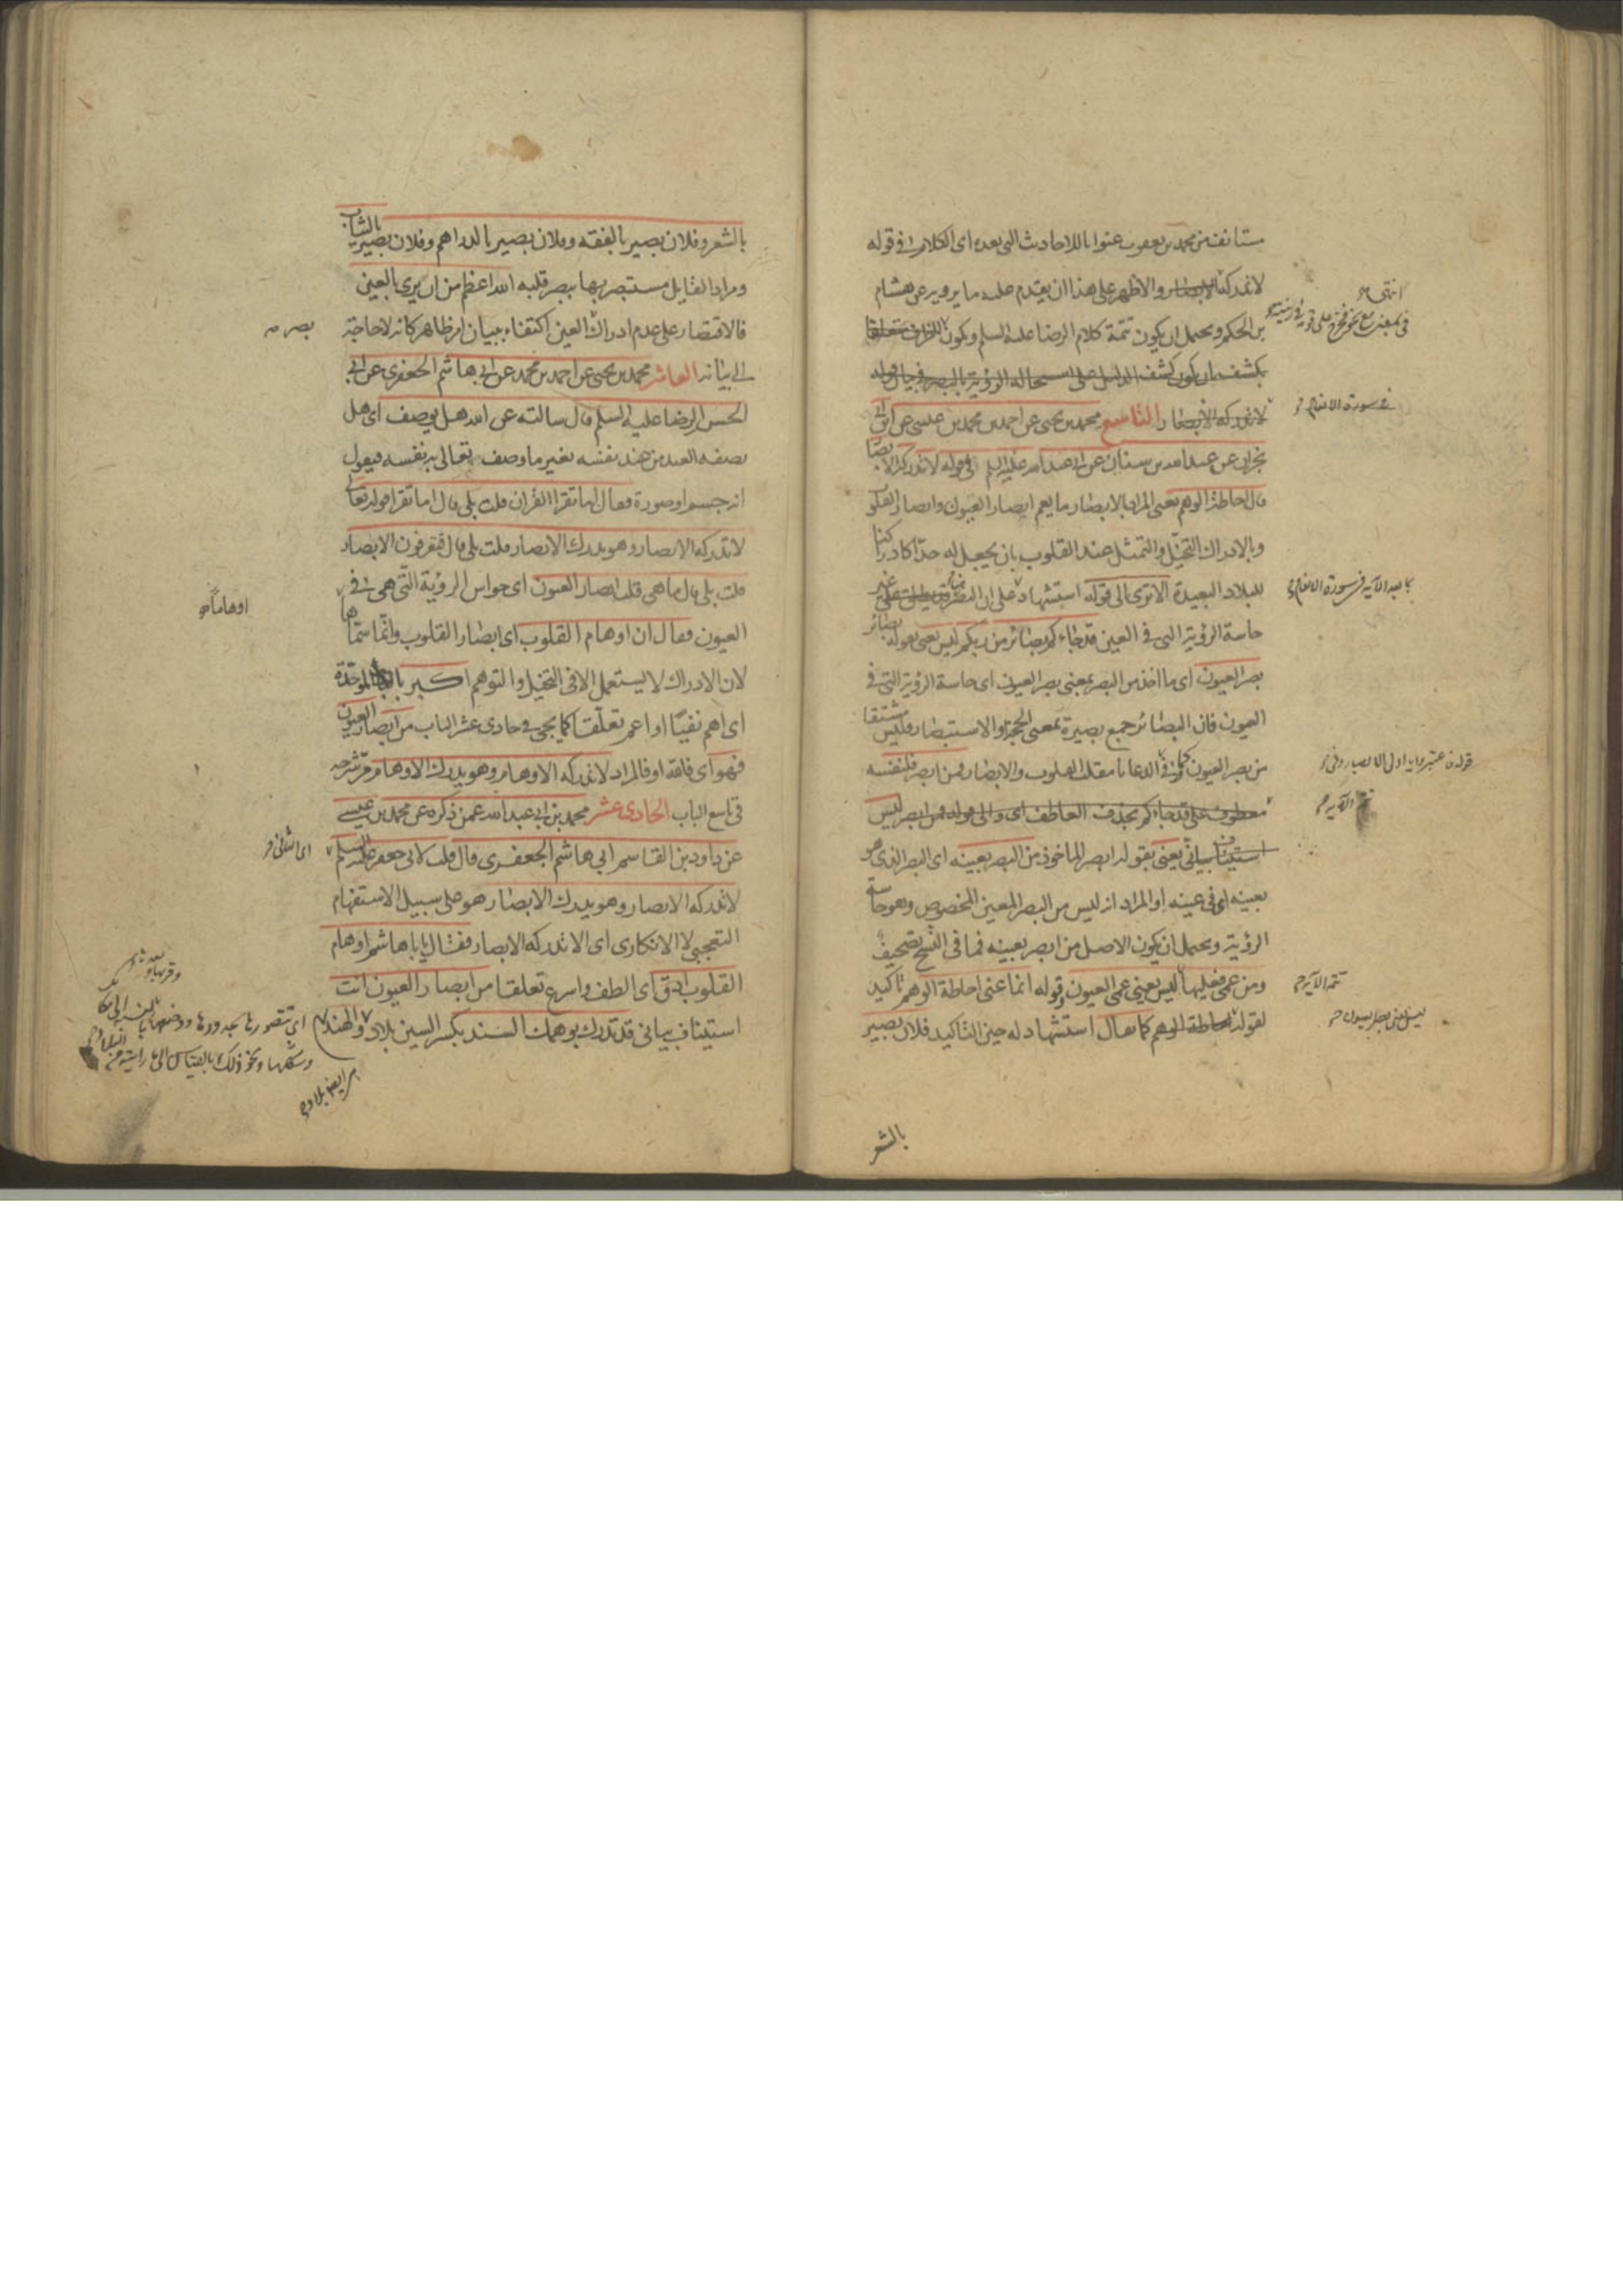 مستانف من محمد بن يعقوب عنوانا للاحاديث التي بعده اى الكلام في قوله
لا تدركه الابصار والاظهر على هذا ان يقدم عليه ما يرويه عن هشام
بن الحكم ويحتمل ان يكون تتمة كلام الرضا عليه السلم ويكون
بكشف بان يكون كشف الدليل على استحالة الرؤية بالبصر في بيان قوله
لا تدركه الابصار التاسع محمد بن يحيى عن احمد بن محمد بن عيسى عن ابن ابي
نجران عن عبد الله بن سنان عن ابي عبد الله عليه السلم في قوله لا تدركه الابصار
قال احاطة الوهم يعني المراد بالابصار ما يعم ابصار العيون وابصار القلوب
وبالادراك التخيل والتمثل عند القلوب بان يجعل له حدا كادراكنا
للبلاد البعيدة الا ترى الى قوله استشهاد على ان البصر غير
حاسة الرؤية التي في العين قد جاءكم بصائر من ربكم ليس يعني بقوله بصائر
بصر العيون اى ما اخذ من البصر بمعنى بصر العيون اى حاسة الرؤية التي في
العيون فان البصائر جمع بصيرة بمعنى الحجة والاستبصار وليس مشتقا
من بصر العيون كما في الدعا يا مقلب القلوب والابصار فمن ابصر فلنفسه
معطوف على قد جاءكم بحذف العاطف اى والى قوله فمن ابصر ليس
استيناف بياني يعني بقوله ابصر الماخوذ من البصر بعينه اى البصر الذى هو
بعينه اى في عينه او المراد انه ليس من البصر المعين المخصوص وهو حاسة
الرؤية ويحتمل ان يكون الاصل من ابصر بعينه فما في النسخ تصحيف
ومن عمى فعليها ليس يعني عمى العيون وقوله انما عنى احاطة الوهم تاكيد
لقوله احاطة الوهم كما يقال استشهاد له حين التاكيد فلان بصير
بالشعر
انتهى
في سورة الانعام
ما بعد الآية في سورة الانعام
الآية
تتمة الآية
بالشعر وفلان بصير بالفقه وفلان بصير بالدراهم وفلان بصير بالثياب
ومراد القايل مستبصر بها ببصر قلبه الله اعظم من ان يرى بالعين
فالاقتصار على عدم ادراك العين اكتفاء ببيان امر ظاهر كانه لا حاجة
الى بيانه العاشر محمد بن يحيى عن احمد بن محمد عن ابي هاشم الجعفرى عن ابي
الحسن الرضا عليه السلم قال سالته عن الله هل يوصف اى هل
يصفه العبد من عند نفسه بغير ما وصف تعالى به نفسه فيقول
انه جسم او صورة فقال اما تقرا القران قلت بلى قال اما تقرا قوله تعالى
لا تدركه الابصار وهو يدرك الابصار قلت بلى قال فتعرفون الابصار
قلت بلى قال ما هى قلت ابصار العيون اى حواس الرؤية التي هى في
العيون فقال ان اوهام القلوب اى ابصار القلوب وانما سماها
لان الادراك لا يستعمل الا في التخيل والتوهم اكبر بالباء الموحدة
اى اهم نفيا او اعم تعلقا كما يجئ في حادى عشر الباب من ابصار العيون
فهو اى فالله او فالمراد لا تدركه الاوهام وهو يدرك الاوهام مر شرحه
في تاسع الباب الحادى عشر محمد بن ابي عبد الله عمن ذكره عن محمد بن عيسى
عن داود بن القاسم ابي هاشم الجعفرى قال قلت لابي جعفر عليه السلم
لا تدركه الابصار وهو يدرك الابصار هو على سبيل الاستفهام
التعجبى لا الانكارى اى الا تدركه الابصار فقال يا ابا هاشم اوهام
القلوب ادق اى الطف واسرع تعلقا من ابصار العيون انت
استيناف بياني قد تدرك بوهمك السند بكسر السين بلاد والهند
بصر
اوهاما
اى الثاني
اى تتصورها بحدودها ووضعها
وشكلها ونحو ذلك بالقياس الى ما رايته من